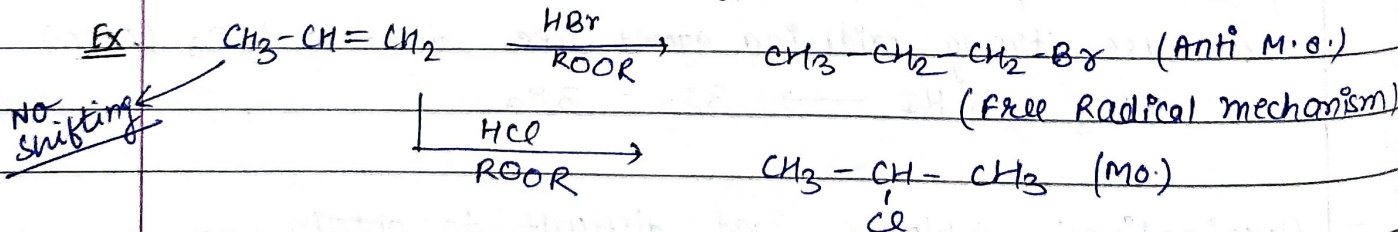 Ex. CH3-CH=CH2 HBr ROOR CH3-CH2-CH2-Br (Anti M.O.)
NO shifting (Free Radical mechanism)
HCl ROOR CH3-CH-CH3 (MO.)
Cl